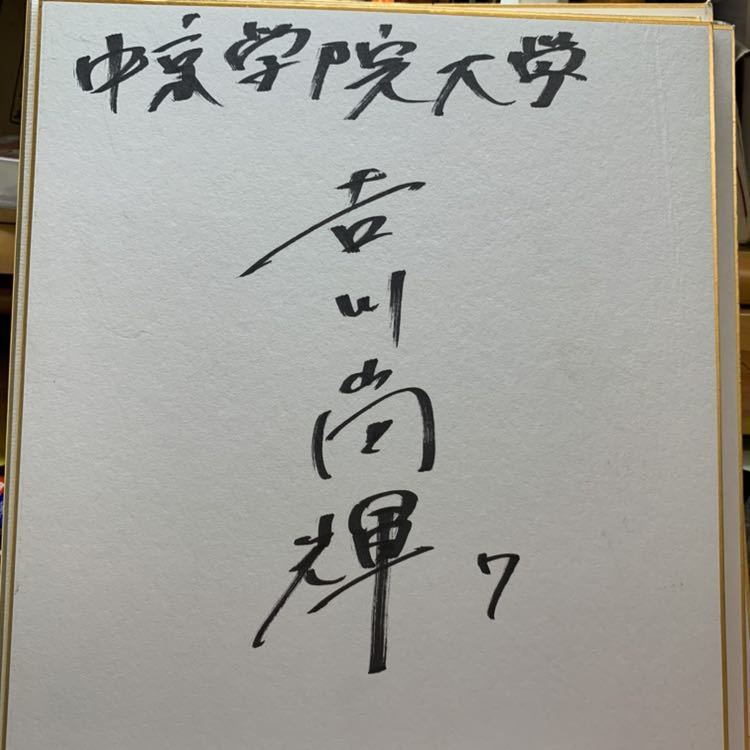 中京学院大学
吉川尚輝
7